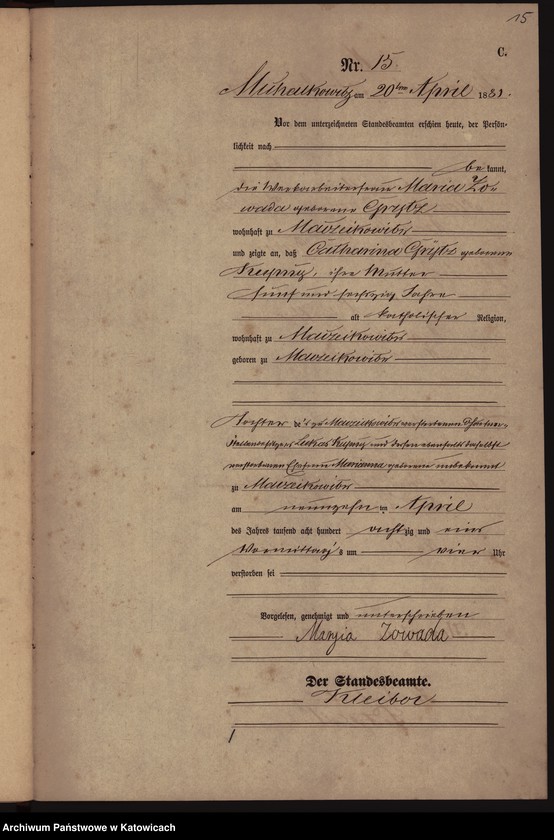 15
C.
Nr. 15.
Michalkowitz am 20ten April 1881.
Vor dem unterzeichneten Standesbeamten erschien heute, der Persön-
lichkeit nach
be kannt,
die Werkarbeiterfrau Maria Zo-
wada geborene
wohnhaft zu
und zeigte an, daß Catharina geborene
ihre Mutter
fünf und sechszig Jahre
alt katholischer Religion,
wohnhaft zu
geboren zu
Tochter des zu verstorbenen Gärtner-
stellenbesitzers Lukas und dessen ebenfalls daselbst
verstorbenen Ehefrau Marianna geborene unbekannt
zu
am neunzehn ten April
des Jahres tausend acht hundert acht zig und eins
Vormittag s um vier Uhr
verstorben sei
Vorgelesen, genehmigt und unterschrieben
Maryia Zowada
Der Standesbeamte.
Kleiber
Archiwum Państwowe w Katowicach